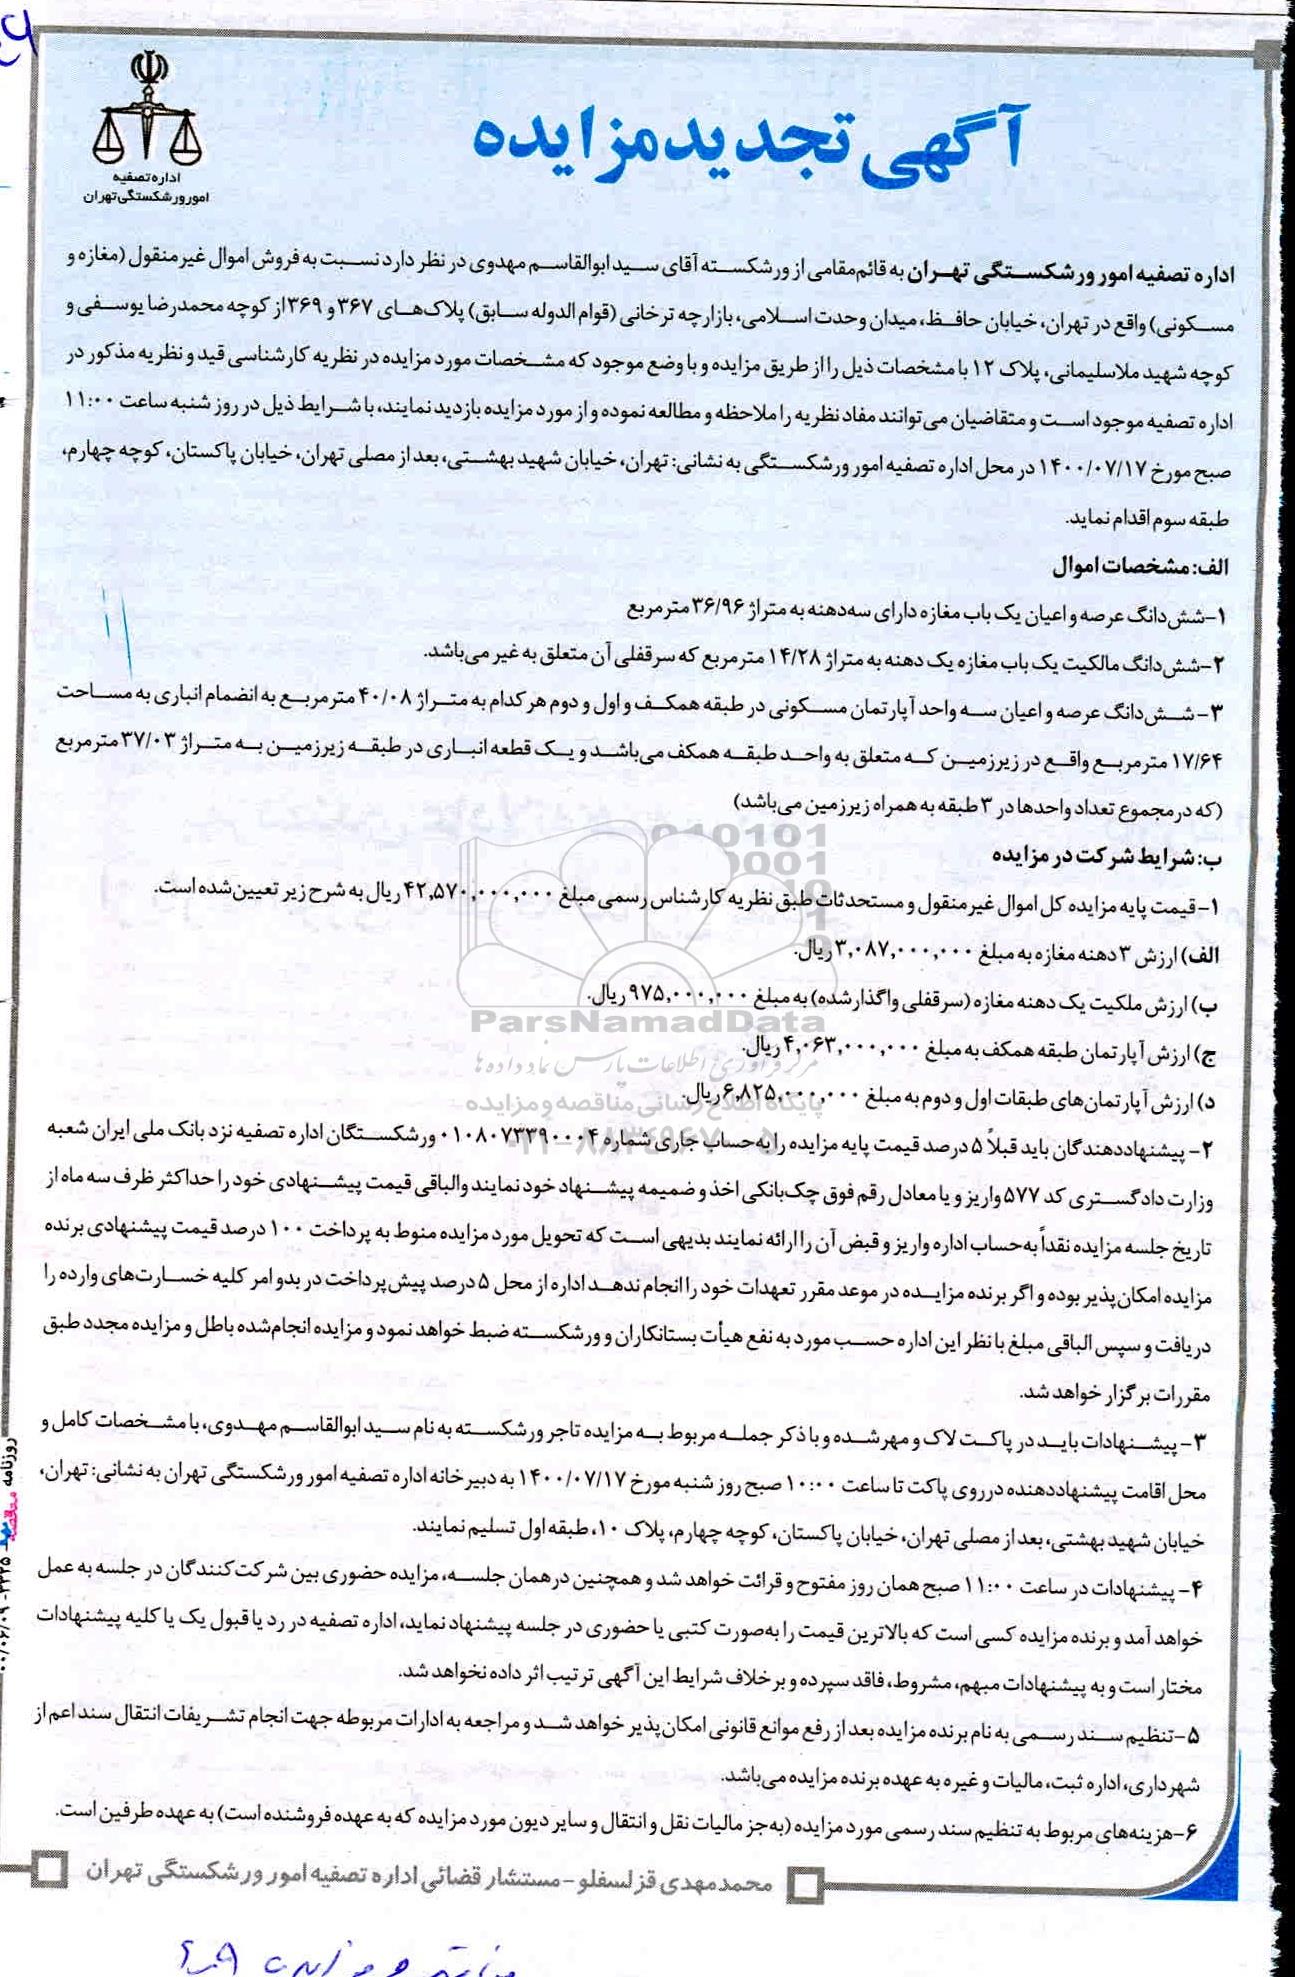 آگهی تجدید مزایده
اداره تصفیه
امور ورشکستگی تهران
اداره تصفیه امور ورشکستگی تهران به قائم‌مقامی از ورشکسته آقای سید ابوالقاسم مهدوی در نظر دارد نسبت به فروش اموال غیرمنقول (مغازه و
مسکونی) واقع در تهران، خیابان حافظ، میدان وحدت اسلامی، بازارچه ترخانی (قوام الدوله سابق) پلاک‌های ۳۶۷ و ۳۶۹ از کوچه محمدرضا یوسفی و
کوچه شهید ملاسلیمانی، پلاک ۱۲ با مشخصات ذیل را از طریق مزایده و با وضع موجود که مشخصات مورد مزایده در نظریه کارشناسی قید و نظریه مذکور در
اداره تصفیه موجود است و متقاضیان می‌توانند مفاد نظریه را ملاحظه و مطالعه نموده و از مورد مزایده بازدید نمایند، با شرایط ذیل در روز شنبه ساعت ۱۱:۰۰
صبح مورخ ۱۴۰۰/۰۷/۱۷ در محل اداره تصفیه امور ورشکستگی به نشانی: تهران، خیابان شهید بهشتی، بعد از مصلی تهران، خیابان پاکستان، کوچه چهارم،
طبقه سوم اقدام نماید.
الف: مشخصات اموال
۱-شش‌دانگ عرصه و اعیان یک باب مغازه دارای سه‌دهنه به متراژ ۳۶/۹۶ مترمربع
۲-شش‌دانگ مالکیت یک باب مغازه یک دهنه به متراژ ۱۴/۲۸ مترمربع که سرقفلی آن متعلق به غیر می‌باشد.
۳- شش‌دانگ عرصه و اعیان سه واحد آپارتمان مسکونی در طبقه همکف و اول و دوم هر کدام به متراژ ۴۰/۰۸ مترمربع به انضمام انباری به مساحت
۱۷/۶۴ مترمربع واقع در زیرزمین که متعلق به واحد طبقه همکف می‌باشد و یک قطعه انباری در طبقه زیرزمین به متراژ ۳۷/۰۳ مترمربع
(که در مجموع تعداد واحدها در ۳ طبقه به همراه زیرزمین می‌باشد)
ب: شرایط شرکت در مزایده
۱- قیمت پایه مزایده کل اموال غیرمنقول و مستحدثات طبق نظریه کارشناس رسمی مبلغ ۴۲,۵۷۰,۰۰۰,۰۰۰ ریال به شرح زیر تعیین شده است.
الف) ارزش ۳ دهنه مغازه به مبلغ ۳,۰۸۷,۰۰۰,۰۰۰ ریال.
ب) ارزش ملکیت یک دهنه مغازه (سرقفلی واگذار شده) به مبلغ ۹۷۵,۰۰۰,۰۰۰ ریال.
ParsNamadData
ج) ارزش آپارتمان طبقه همکف به مبلغ ۴,۰۶۳,۰۰۰,۰۰۰ ریال.
مرکز فرآوری اطلاعات پارس نماد داده‌ها
د) ارزش آپارتمان‌های طبقات اول و دوم به مبلغ ۶,۸۲۵,۰۰۰,۰۰۰ ریال.
پایگاه اطلاع رسانی مناقصه و مزایده
۲- پیشنهاددهندگان باید قبلاً ۵ درصد قیمت پایه مزایده را به‌حساب جاری شماره ۰۱۰۸۰۷۳۳۹۰۰۰۴ ورشکستگان اداره تصفیه نزد بانک ملی ایران شعبه
وزارت دادگستری کد ۵۷۷ واریز و یا معادل رقم فوق چک‌بانکی اخذ و ضمیمه پیشنهاد خود نمایند والباقی قیمت پیشنهادی خود را حداکثر ظرف سه ماه از
تاریخ جلسه مزایده نقداً به‌حساب اداره واریز و قبض آن را ارائه نمایند بدیهی است که تحویل مورد مزایده منوط به پرداخت ۱۰۰ درصد قیمت پیشنهادی برنده
مزایده امکان‌پذیر بوده و اگر برنده مزایده در موعد مقرر تعهدات خود را انجام ندهد اداره از محل ۵ درصد پیش‌پرداخت در بدو امر کلیه خسارت‌های وارده را
دریافت و سپس الباقی مبلغ با نظر این اداره حسب مورد به نفع هیأت بستانکاران و ورشکسته ضبط خواهد نمود و مزایده انجام‌شده باطل و مزایده مجدد طبق
مقررات برگزار خواهد شد.
۳- پیشنهادات باید در پاکت لاک و مهر شده و با ذکر جمله مربوط به مزایده تاجر ورشکسته به نام سید ابوالقاسم مهدوی، با مشخصات کامل و
محل اقامت پیشنهاددهنده درروی پاکت تا ساعت ۱۰:۰۰ صبح روز شنبه مورخ ۱۴۰۰/۰۷/۱۷ به دبیرخانه اداره تصفیه امور ورشکستگی تهران به نشانی: تهران،
خیابان شهید بهشتی، بعد از مصلی تهران، خیابان پاکستان، کوچه چهارم، پلاک ۱۰، طبقه اول تسلیم نمایند.
۴- پیشنهادات در ساعت ۱۱:۰۰ صبح همان روز مفتوح و قرائت خواهد شد و همچنین درهمان جلسه، مزایده حضوری بین شرکت‌کنندگان در جلسه به عمل
خواهد آمد و برنده مزایده کسی است که بالاترین قیمت را به‌صورت کتبی یا حضوری در جلسه پیشنهاد نماید، اداره تصفیه در رد یا قبول یک یا کلیه پیشنهادات
مختار است و به پیشنهادات مبهم، مشروط، فاقد سپرده و برخلاف شرایط این آگهی ترتیب اثر داده نخواهد شد.
۵-تنظیم سند رسمی به نام برنده مزایده بعد از رفع موانع قانونی امکان‌پذیر خواهد شد و مراجعه به ادارات مربوطه جهت انجام تشریفات انتقال سند اعم از
شهرداری، اداره ثبت، مالیات و غیره به عهده برنده مزایده می‌باشد.
۶-هزینه‌های مربوط به تنظیم سند رسمی مورد مزایده (به‌جز مالیات نقل و انتقال و سایر دیون مورد مزایده که به عهده فروشنده است) به عهده طرفین است.
محمدمهدی قزلسفلو - مستشار قضائی اداره تصفیه امور ورشکستگی تهران
روزنامه مناقصه